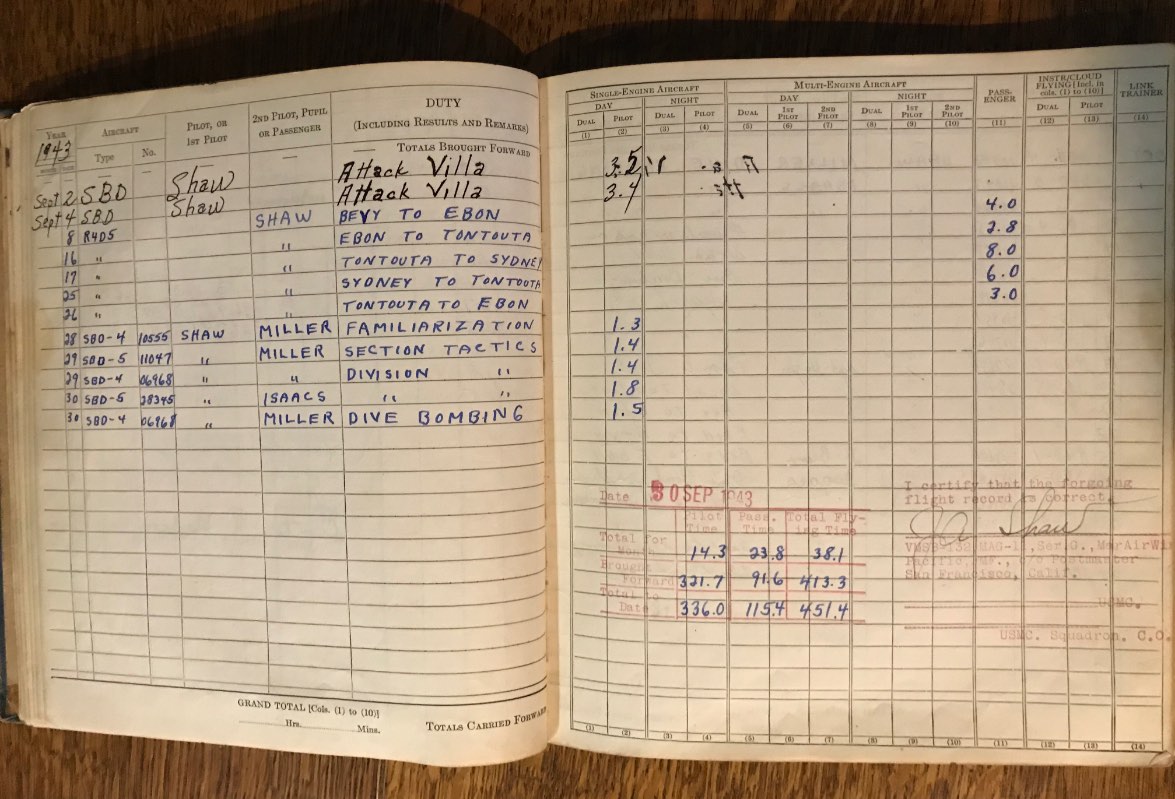 YEAR AIRCRAFT PILOT, OR 1ST PILOT 2ND PILOT, PUPIL OR PASSENGER DUTY (INCLUDING RESULTS AND REMARKS)
1943 Type No. — — — TOTALS BROUGHT FORWARD
Attack Villa
Sept 2 SBD Shaw Attack Villa
Sept 4 SBD Shaw
8 R4D5 SHAW BEVY TO EBON
16 " " EBON TO TONTOUTA
17 " " TONTOUTA TO SYDNEY
25 " " SYDNEY TO TONTOUTA
26 " " TONTOUTA TO EBON
28 SBD-4 10555 SHAW MILLER FAMILIARIZATION
29 SBD-5 11047 " MILLER SECTION TACTICS
29 SBD-4 06968 " " DIVISION "
30 SBD-5 28345 " ISAACS " "
30 SBD-4 06968 " MILLER DIVE BOMBING
GRAND TOTAL [Cols. (1) to (10)]
Hrs. Mins.
TOTALS CARRIED FORWARD
SINGLE-ENGINE AIRCRAFT MULTI-ENGINE AIRCRAFT PASS-ENGER INSTR/CLOUD FLYING [Incl. in cols. (1) to (10)] LINK TRAINER
DAY NIGHT DAY NIGHT
DUAL PILOT DUAL PILOT DUAL 1ST PILOT 2ND PILOT DUAL 1ST PILOT 2ND PILOT DUAL PILOT
(1) (2) (3) (4) (5) (6) (7) (8) (9) (10) (11) (12) (13) (14)
3.5
3.4
4.0
2.8
8.0
6.0
3.0
1.3
1.4
1.4
1.8
1.5
Date 30 SEP 1943
Pilot Time Pass. Time Total Flying Time
Total for Month 14.3 23.8 38.1
Brought Forward 321.7 91.6 413.3
Total to Date 336.0 115.4 451.4
I certify that the forgoing
flight record is correct.
J A Shaw
San Francisco, Calif.
USMC.
USMC. Squadron, C.O.
(1) (2) (3) (4) (5) (6) (7) (8) (9) (10) (11) (12) (13) (14)